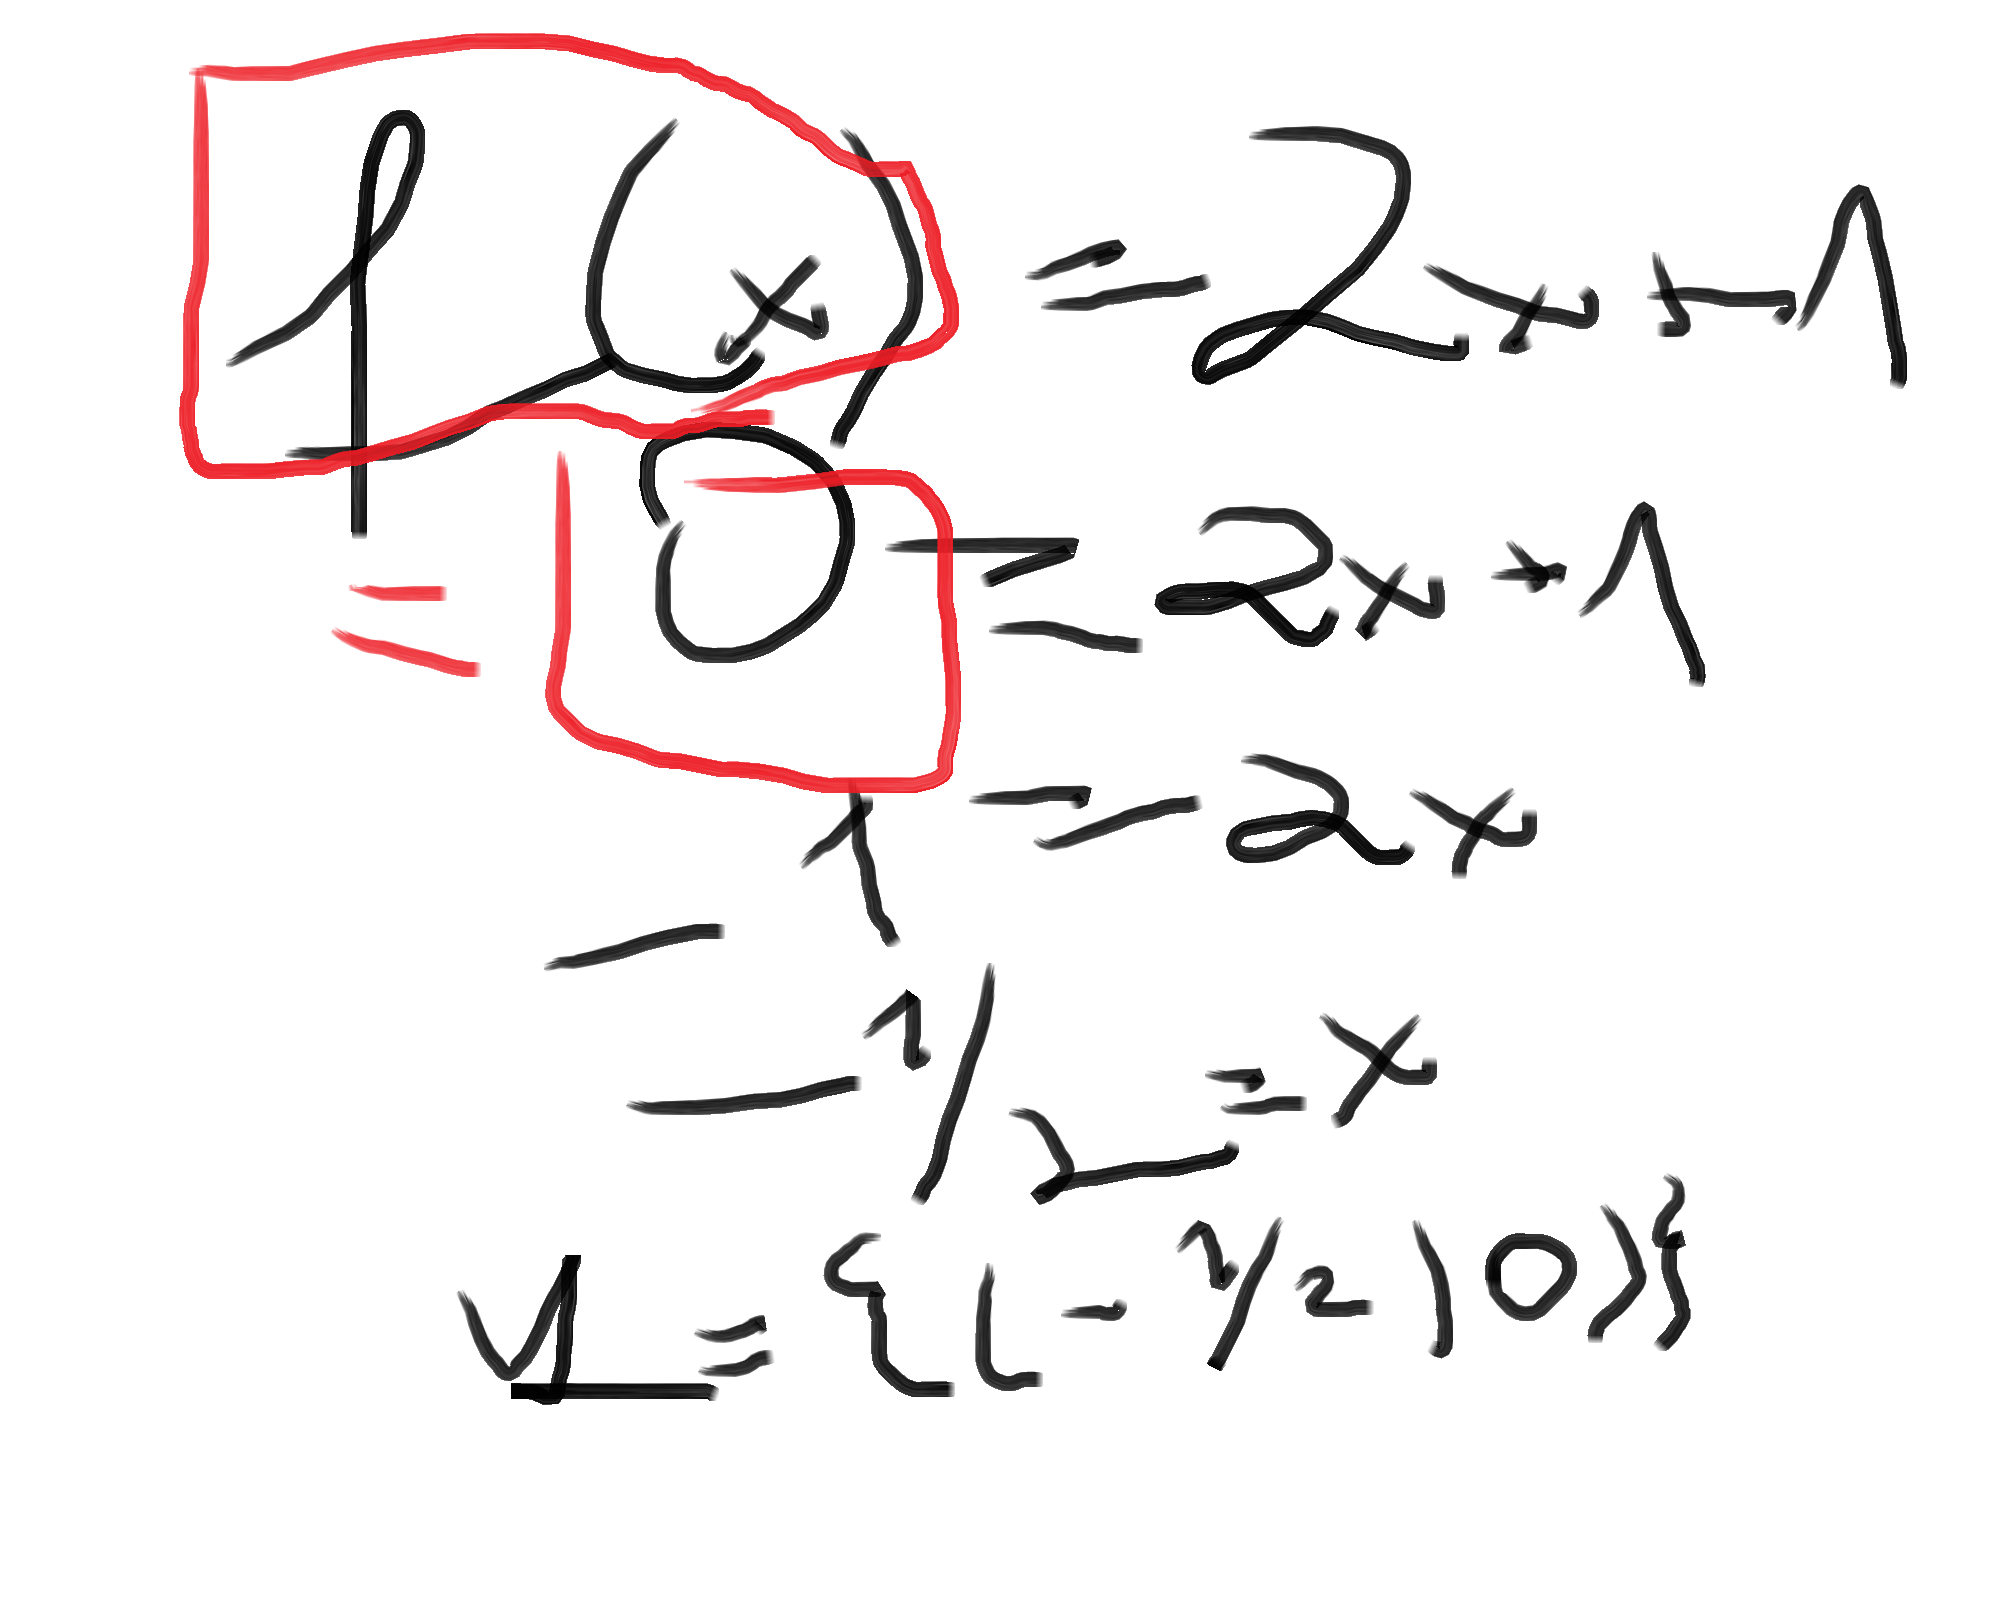 f(x) = 2x + 1
= 0 = 2x + 1
- 1 = 2x
- 1/2 = x
= {(- 1/2 | 0)}